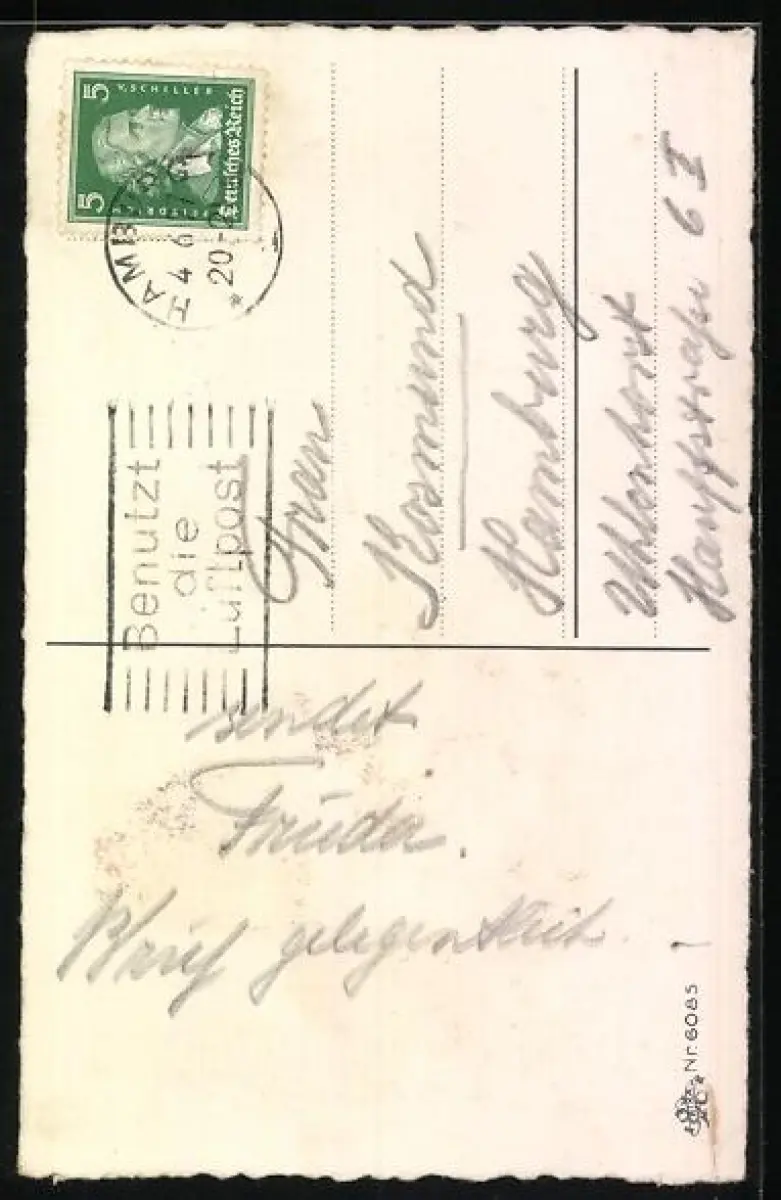 5 5
V. SCHILLER
FRIEDRICH
Deutsches Reich
HAMB
4 6
20-
Benutzt
die
Luftpost
Frau
Rosmund
Hamburg
Uhlenhorst
6 I
sendet
Frieda.
Brief gelegentlich.
Nr. 6085